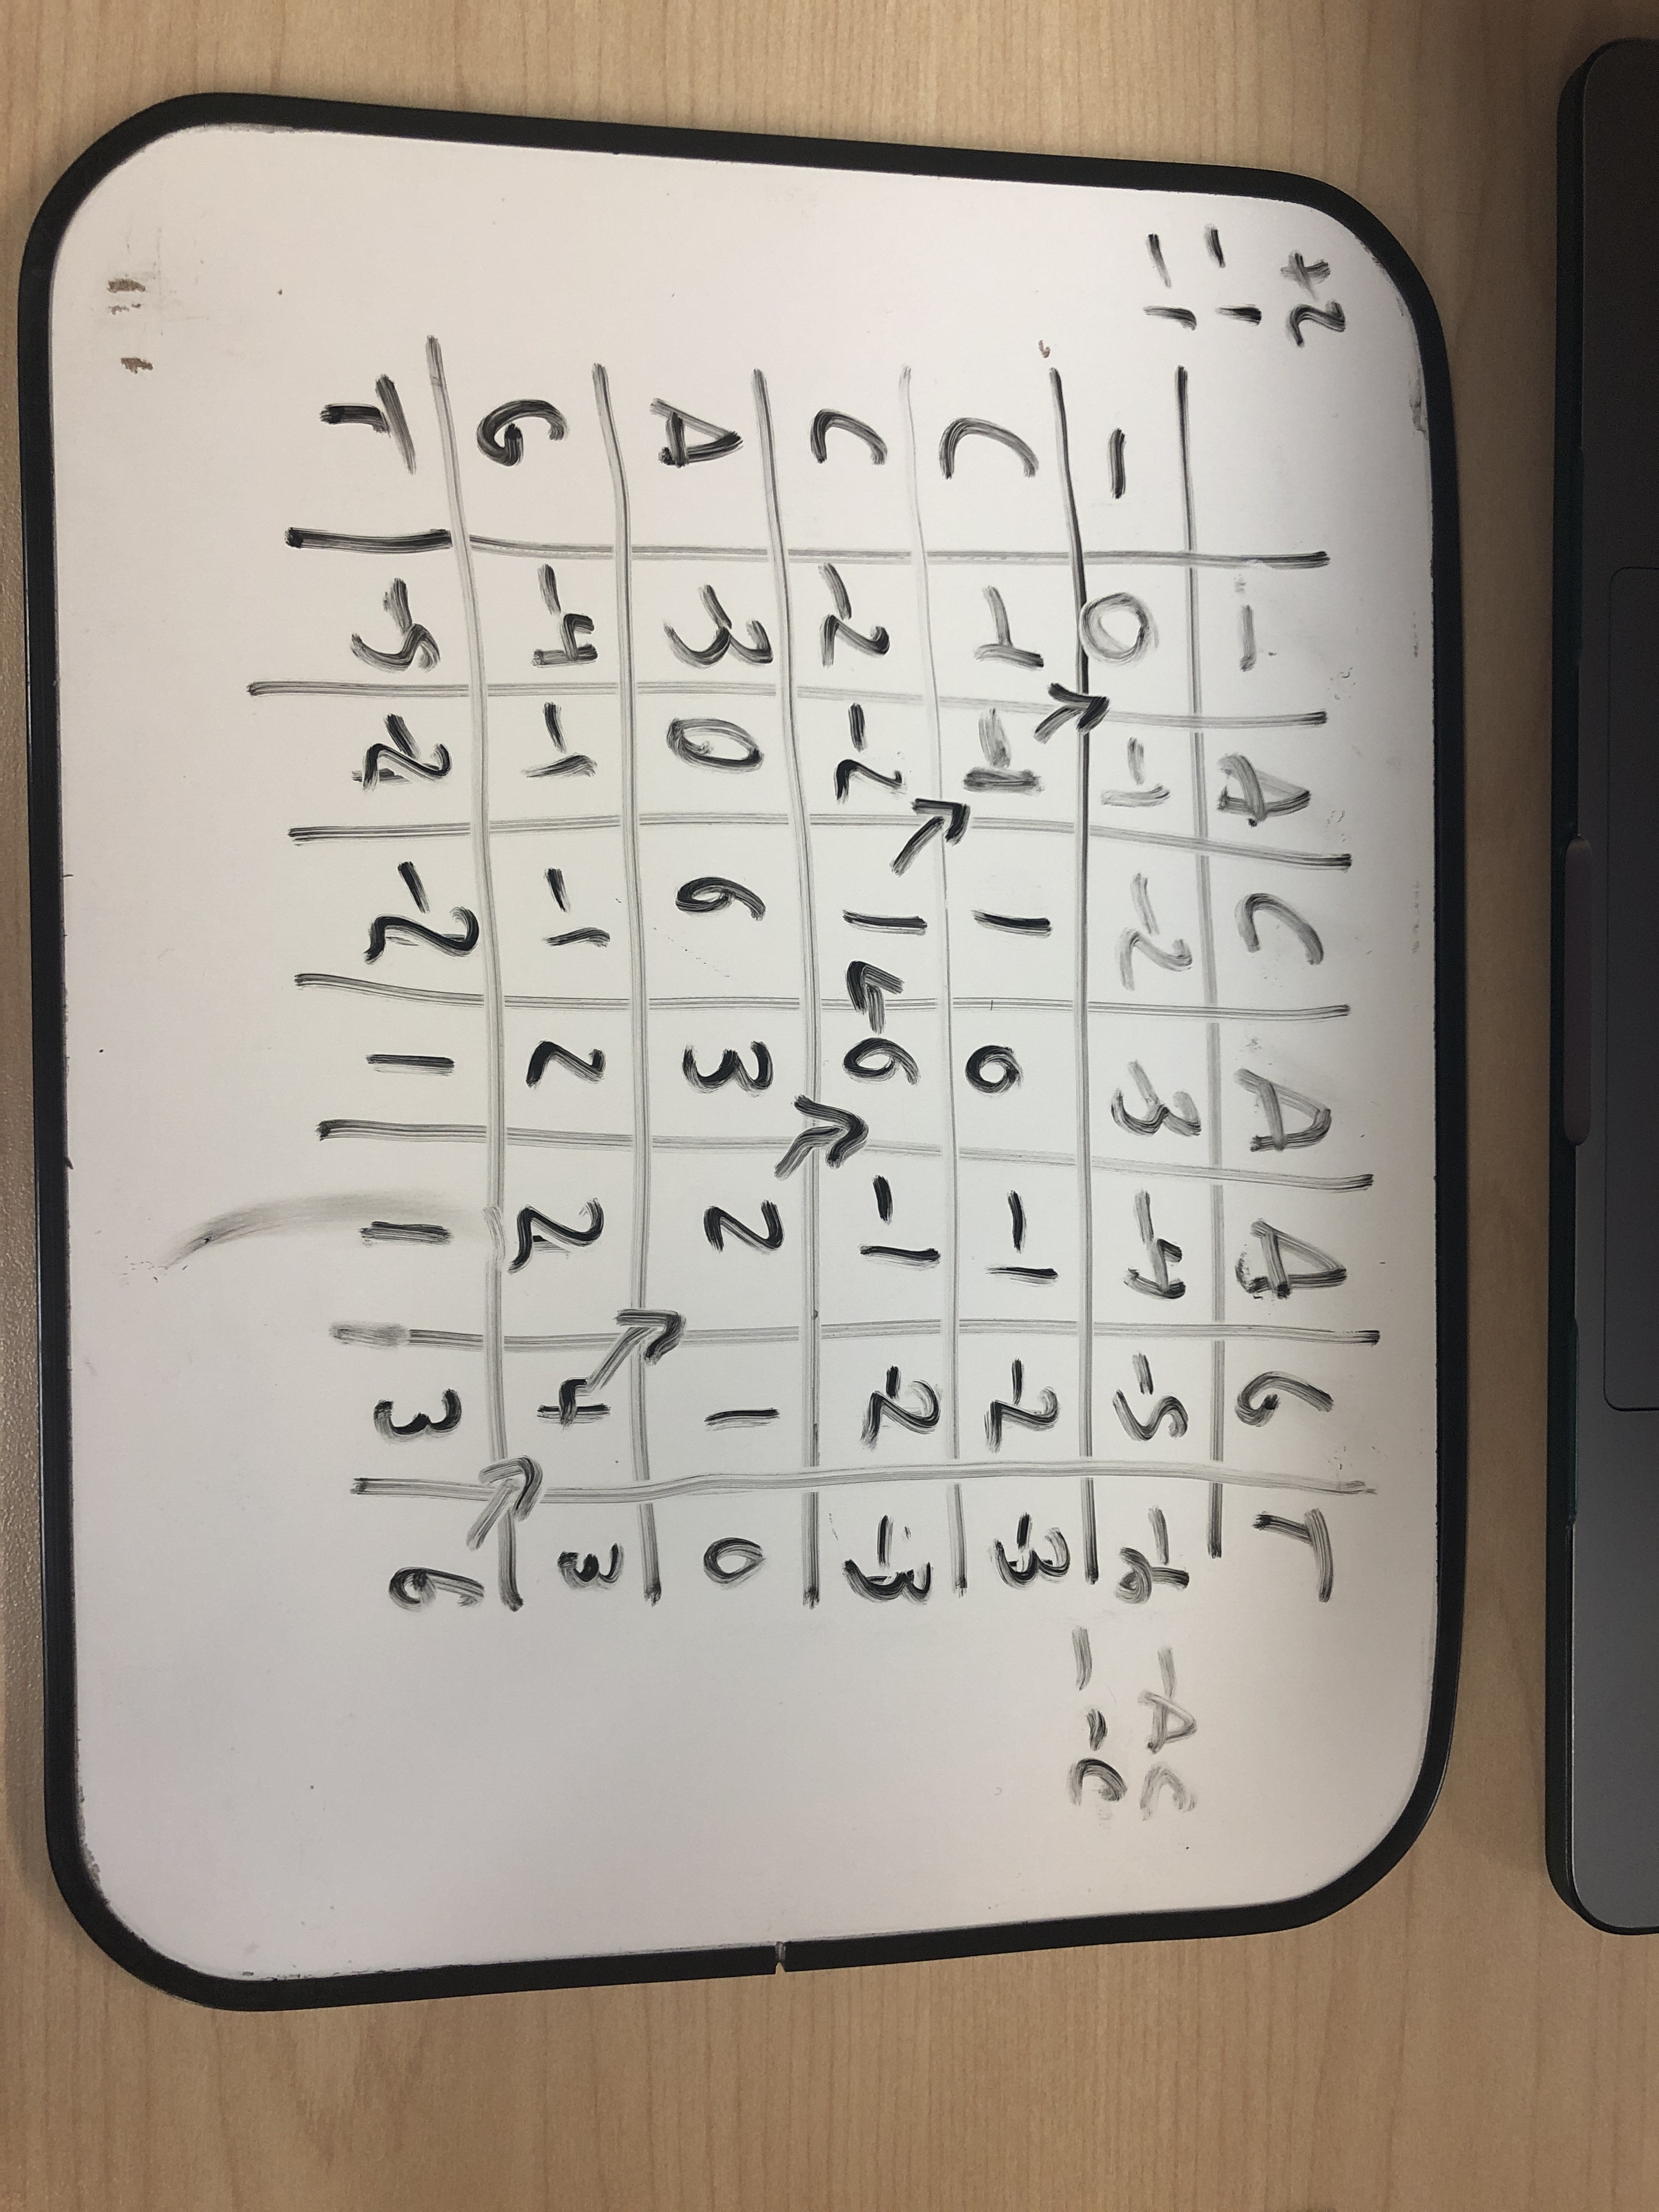 +2
-1
-1
- A C A A G T
- 0 -1 -2 3 -4 -5 -6 -AC
C -1 -1 1 0 -1 -2 -3 --C
C -2 -2 1 ← 0 -1 -2 -3
A 3 0 0 3 2 1 0
G -4 -1 -1 2 2 4 3
T -5 -2 -2 1 1 3 6